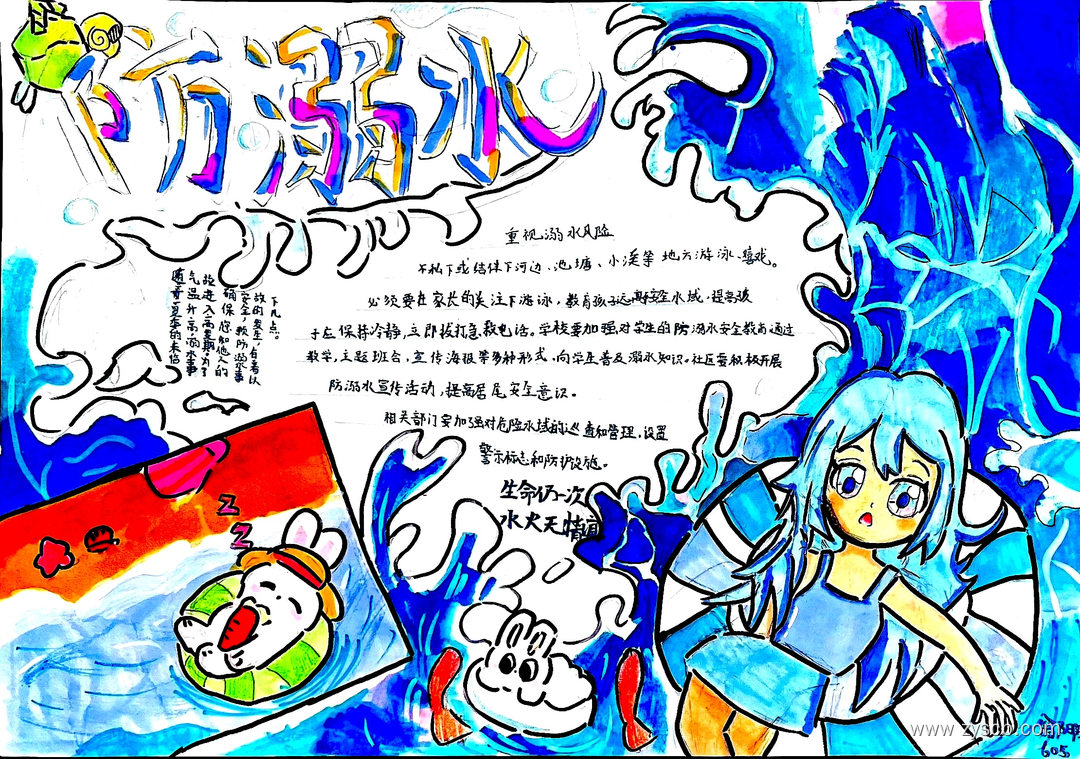 防溺水
重视溺水风险
不私下或结伴下河边、池塘、小溪等地方游泳、嬉戏。
必须要在家长的关注下游泳，教育孩子远离安全水域，提高孩
子在保持冷静，立即拨打急救电话。学校要加强对学生的防溺水安全教育通过
教学，主题班会，宣传海报等多种形式，向学生普及溺水知识。社区要积极开展
防溺水宣传活动，提高居民安全意识。
相关部门要加强对危险水域的巡查和管理，设置
警示标志和防护设施。
生命仅一次
水火无情
随着夏季的来临
气温升高，溺水事
故进入高发期。为了
确保您和他人的
安全，救防溺水事
故的发生，有着以
下几点。
z
z
z
www.zysco.com
605